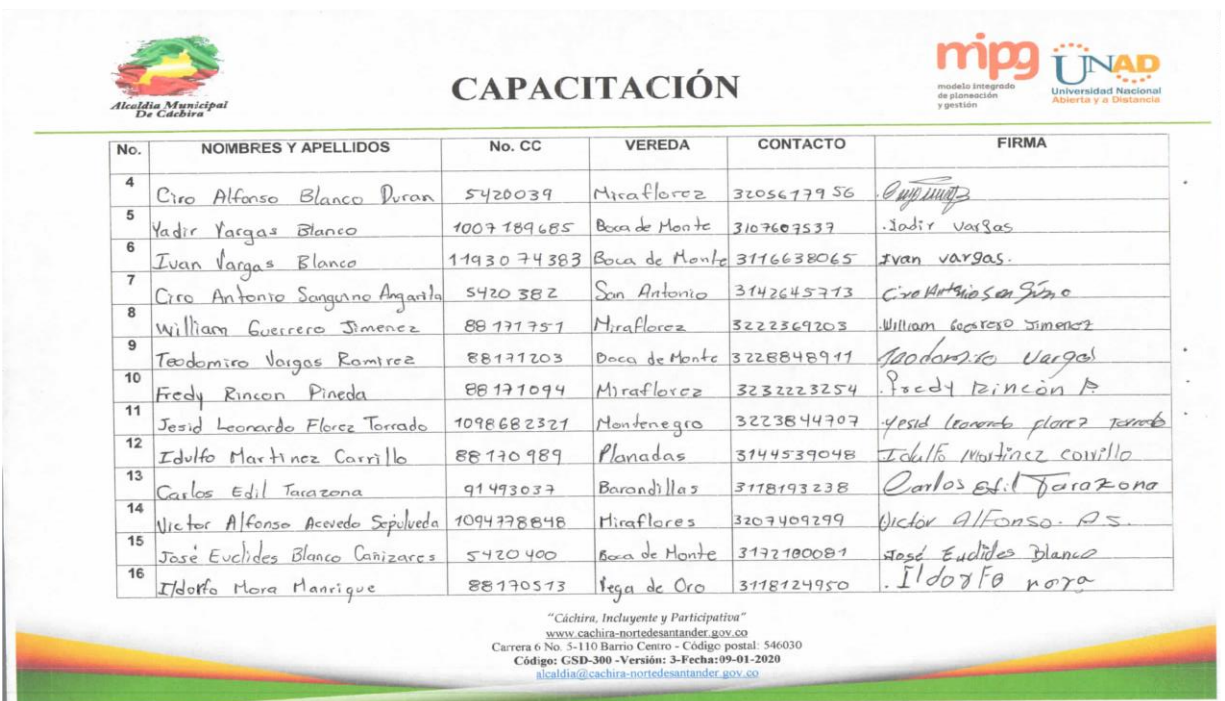 Alcaldia Municipal
De Cáchira
CAPACITACIÓN
mipg
modelo integrado
de planeación
y gestión
UNAD
Universidad Nacional
Abierta y a Distancia
No. NOMBRES Y APELLIDOS No. CC VEREDA CONTACTO FIRMA
4 Ciro Alfonso Blanco Duran 5420039 Miraflorez 3205617956
5 Yadir Vargas Blanco 1007189685 Boca de Monte 3107607537 Yadir vargas
6 Ivan Vargas Blanco 1193074383 Boca de Monte 3116638065 Ivan vargas.
7 Ciro Antonio Sanguino Angarita 5420382 San Antonio 3142645713 Ciro Antonio
8 William Guerrero Jimenez 88171751 Miraflorez 3222369203 William Jimenez
9 Teodomiro Vargas Ramirez 88171203 Boca de Monte 3228848911 Teodomiro Vargas
10 Fredy Rincon Pineda 88171094 Miraflorez 3232223254 fredy Rincón P.
11 Jesid Leonardo Florez Torrado 1098682321 Montenegro 3223844707 Yesid leonardo florez Torrado
12 Idulfo Martinez Carrillo 88170989 Planadas 3144539048 Idulfo Martinez
13 Carlos Edil Tarazona 91493037 Barandillas 3118193238 Carlos Edil Tarazona
14 Victor Alfonso Acevedo Sepulveda 1094778848 Miraflores 3207409299 Victor Alfonso. A.S.
15 José Euclides Blanco Cañizares 5420400 Boca de Monte 3172180081 José Euclides Blanco
16 Ildolfo Mora Manrique 88170513 Vega de Oro 3118124950
"Cáchira, Incluyente y Participativa"
www.cachira-nortedesantander.gov.co
Carrera 6 No. 5-110 Barrio Centro - Código postal: 546030
Código: GSD-300 -Versión: 3-Fecha:09-01-2020
alcaldia@cachira-nortedesantander.gov.co